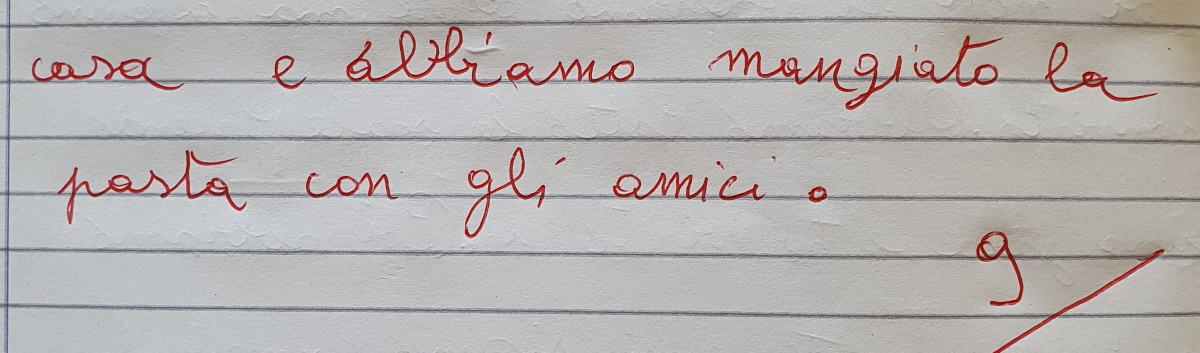 casa e abbiamo mangiato la
pasta con gli amici.
9